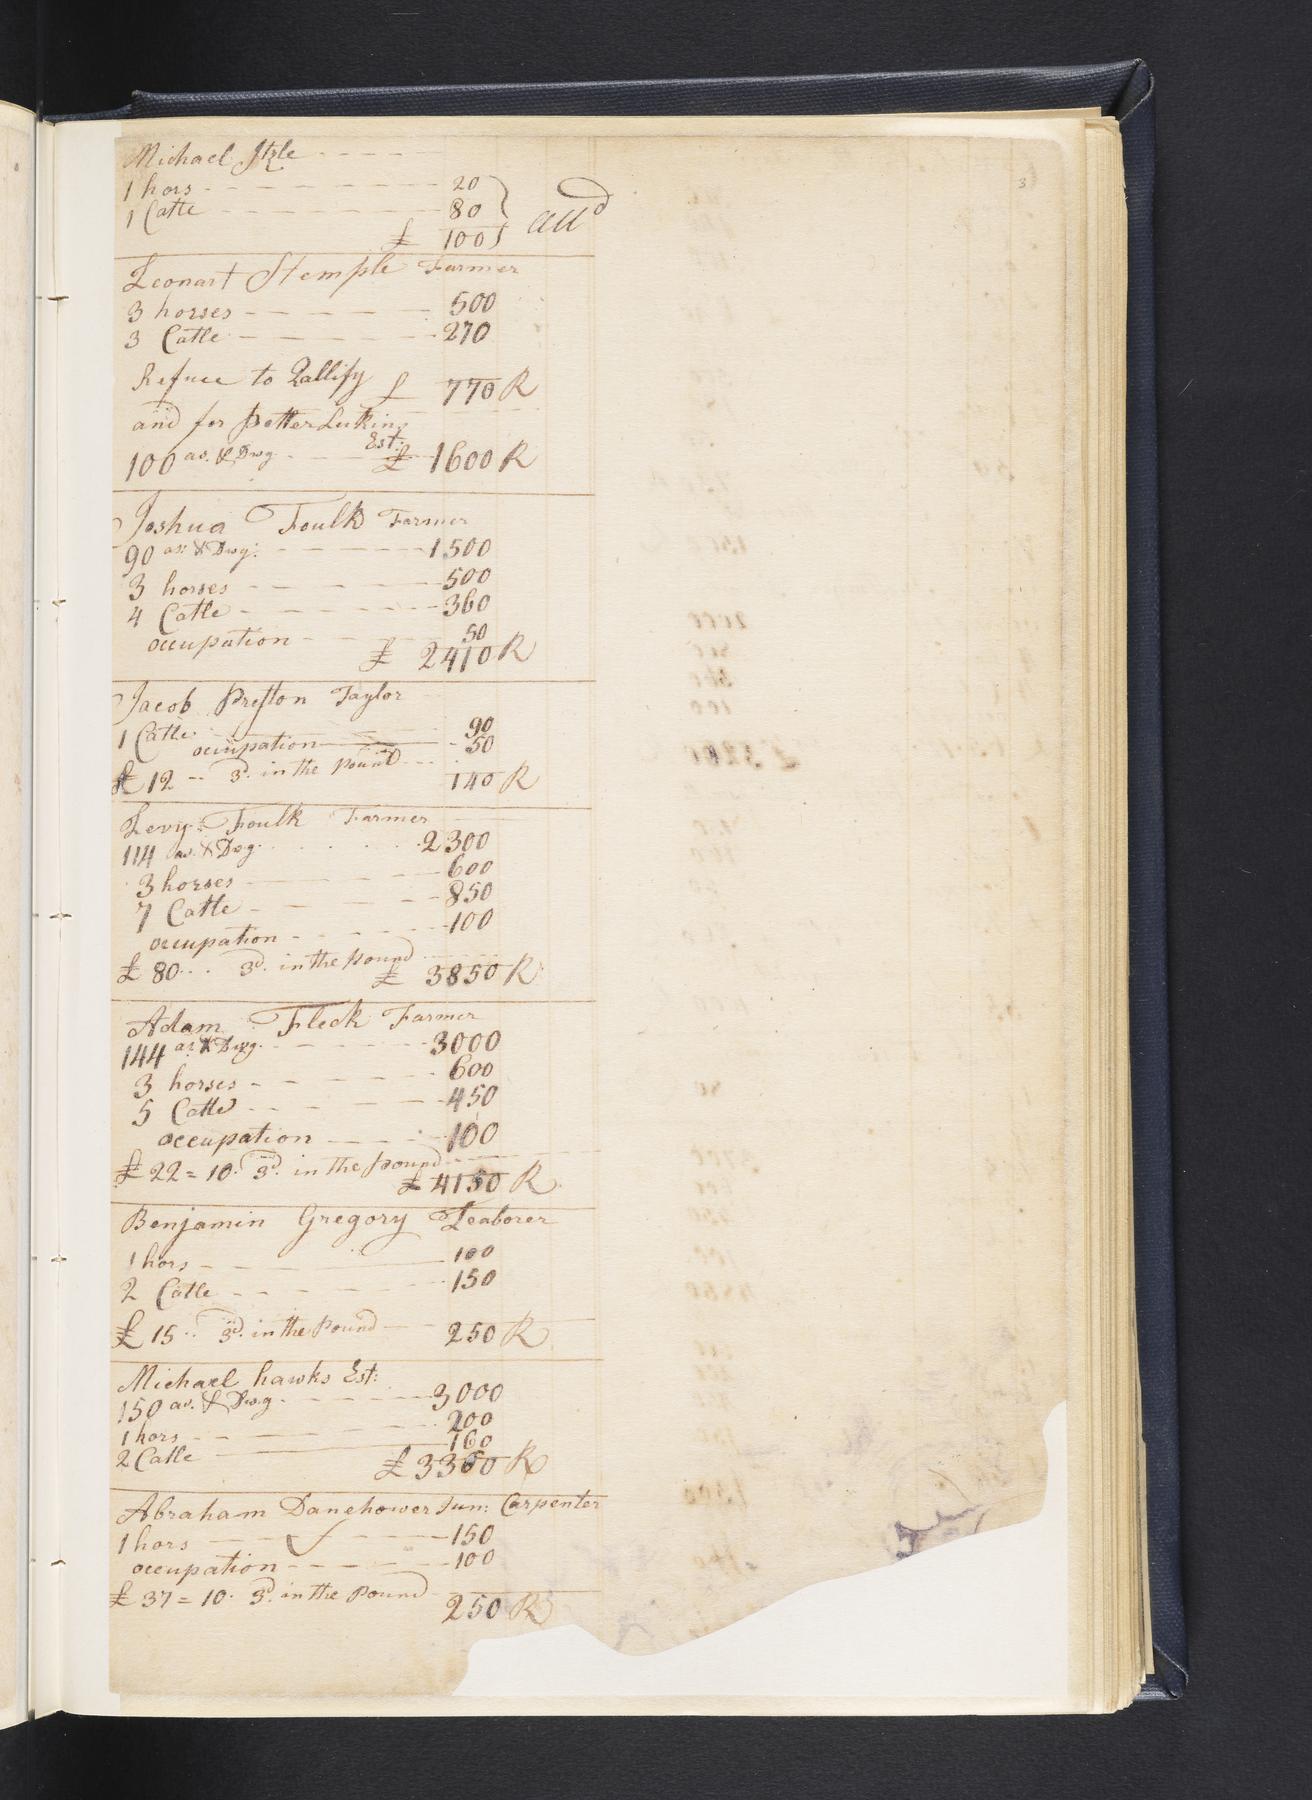 3
Michael Itzle
1 hors 20
1 Catle 80
£ 100 aud
Leonart Stemple Farmer
3 horses 500
3 Catle 270
Refuce to Qallify £ 770 R
and for Better Luking
100 as. & Dwg Est: £ 1600 R
Joshua Foulk Farmer
90 as: & Dwg: 1500
3 horses 500
4 Catle 360
occupation 50
£ 2410 R
Jacob Preston Taylor
1 Catle 90
occupation 50
£ 12 -- 3d. in the pound 140 R
Levy Foulk Farmer
114 as. & Dwg. 2300
3 horses 600
7 Catle 850
occupation 100
£ 80 .. 3d. in the pound £ 3850 R
Adam Fleck Farmer
144 as & Dwg. 3000
3 horses 600
5 Catle 450
occupation 100
£ 22 = 10. 3d. in the pound £ 4150 R
Benjamin Gregory Leaborer
1 hors 100
2 Catle 150
£ 15 .. 3d. in the Pound 250 R
Michael hawks Est:
150 as. & Dwg. 3000
1 hors 200
2 Catle 160
£ 3360 R
Abraham Danehower Jun: Carpenter
1 hors 150
occupation 100
£ 37 = 10. 3d. in the Pound 250 R